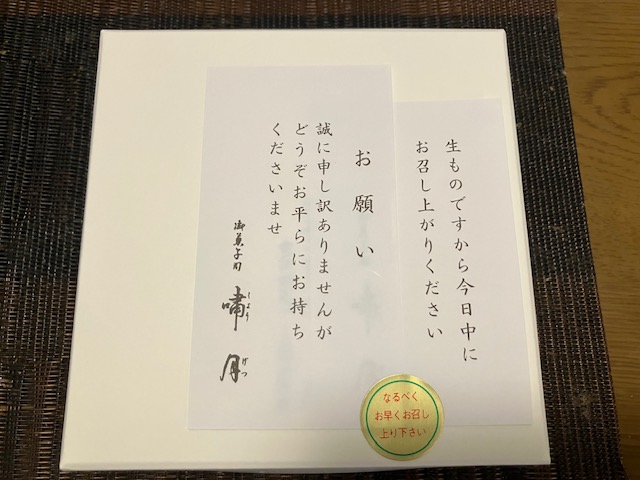 生ものですから今日中に
お召し上がりください
お願い
誠に申し訳ありませんが
どうぞお平らにお持ち
くださいませ
御菓子司
嘯月
しょうげつ
なるべく
お早くお召し
上り下さい